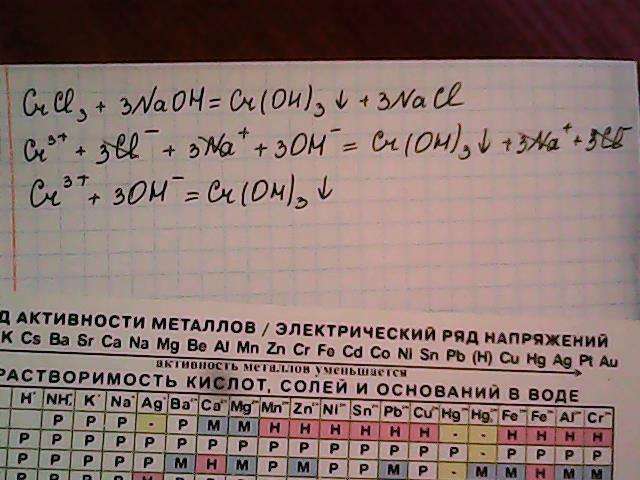 CrCl₃ + 3NaOH = Cr(OH)₃↓ + 3NaCl
Cr³⁺ + 3Cl⁻ + 3Na⁺ + 3OH⁻ = Cr(OH)₃↓ + 3Na⁺ + 3Cl⁻
Cr³⁺ + 3OH⁻ = Cr(OH)₃↓
Д АКТИВНОСТИ МЕТАЛЛОВ / ЭЛЕКТРИЧЕСКИЙ РЯД НАПРЯЖЕНИЙ
K Cs Ba Sr Ca Na Mg Be Al Mn Zn Cr Fe Cd Co Ni Sn Pb (H) Cu Hg Ag Pt Au
активность металлов уменьшается
РАСТВОРИМОСТЬ КИСЛОТ, СОЛЕЙ И ОСНОВАНИЙ В ВОДЕ
H⁺ NH₄⁺ K⁺ Na⁺ Ag⁺ Ba²⁺ Ca²⁺ Mg²⁺ Mn²⁺ Zn²⁺ Ni²⁺ Sn²⁺ Pb²⁺ Cu²⁺ Hg²⁺ Hg₂²⁺ Fe²⁺ Fe³⁺ Al³⁺ Cr³⁺
P P P - P M M H H H H H H - - H H H H
P P P P P P P P P P P P P P P